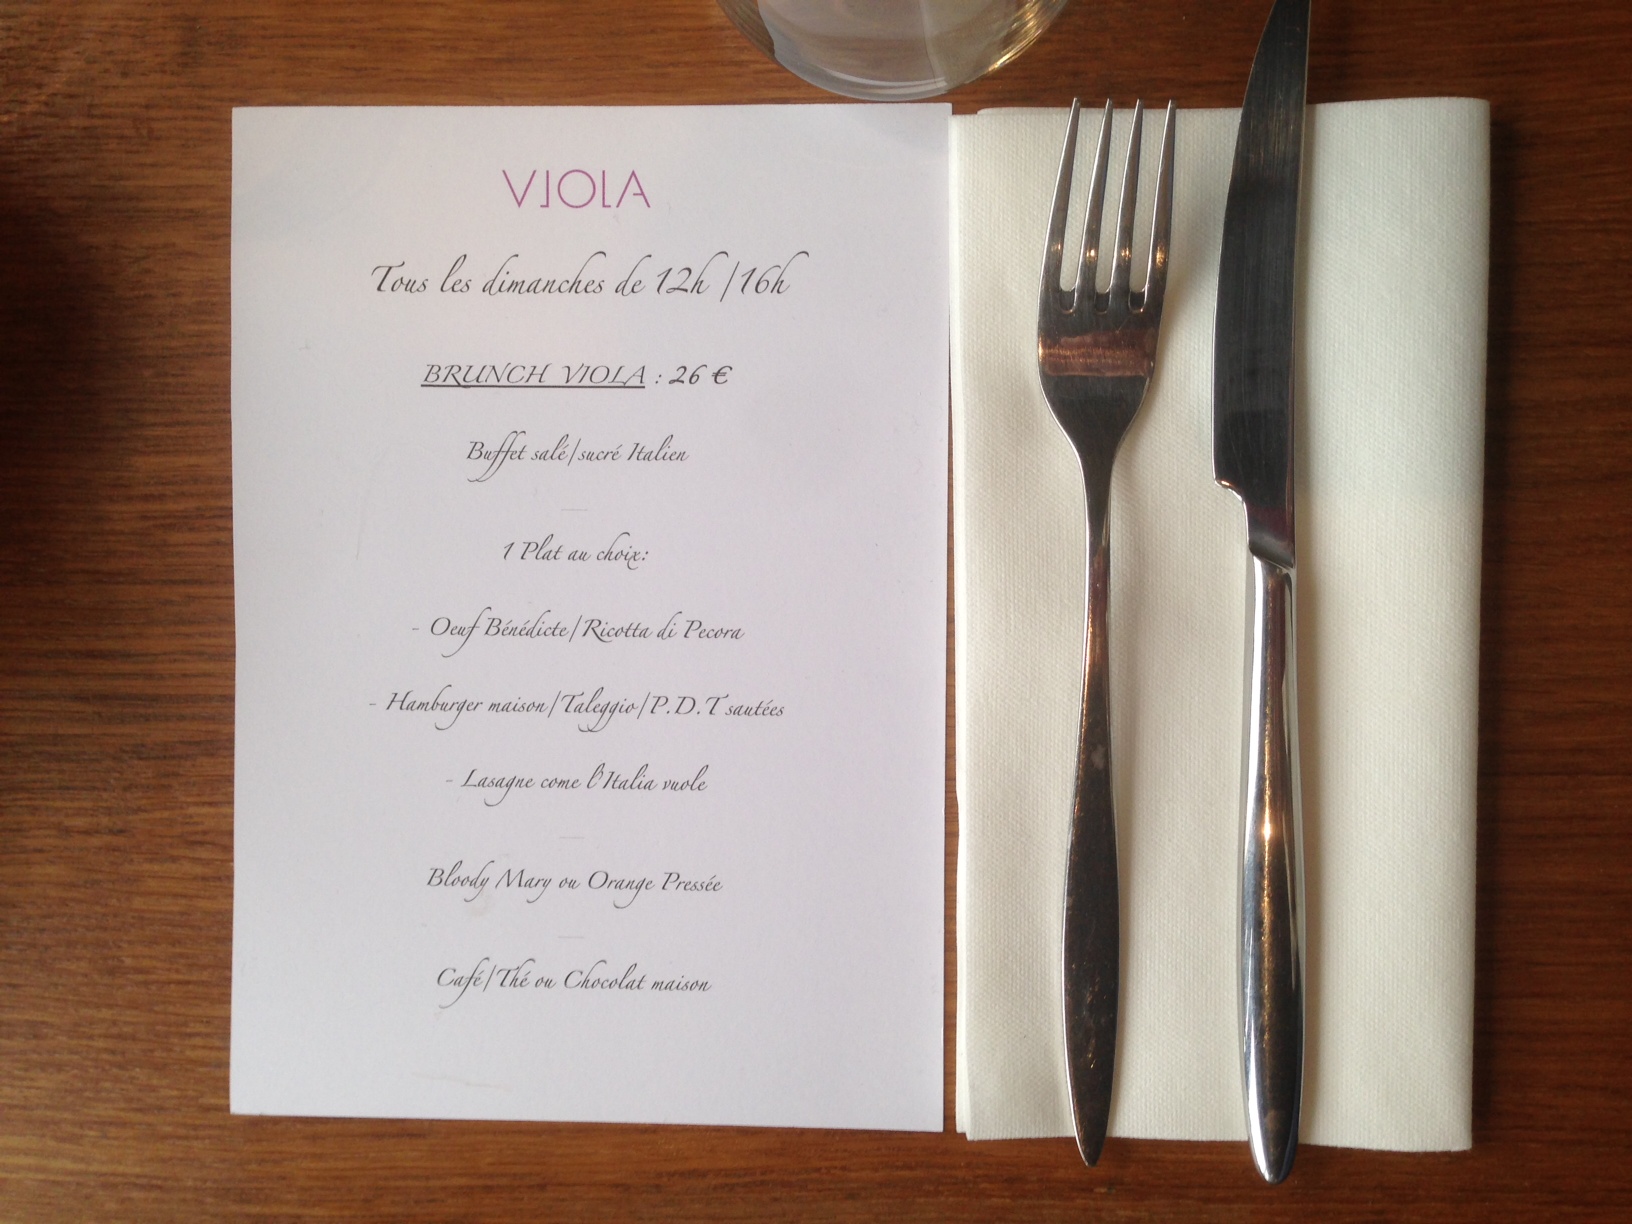 VIOLA
Tous les dimanches de 12h /16h
BRUNCH VIOLA : 26 €
Buffet salé/sucré Italien
1 Plat au choix:
- Oeuf Bénédicte/Ricotta di Pecora
- Hamburger maison/Taleggio/P.D.T sautées
- Lasagne come l'Italia vuole
Bloody Mary ou Orange Pressée
Café/Thé ou Chocolat maison